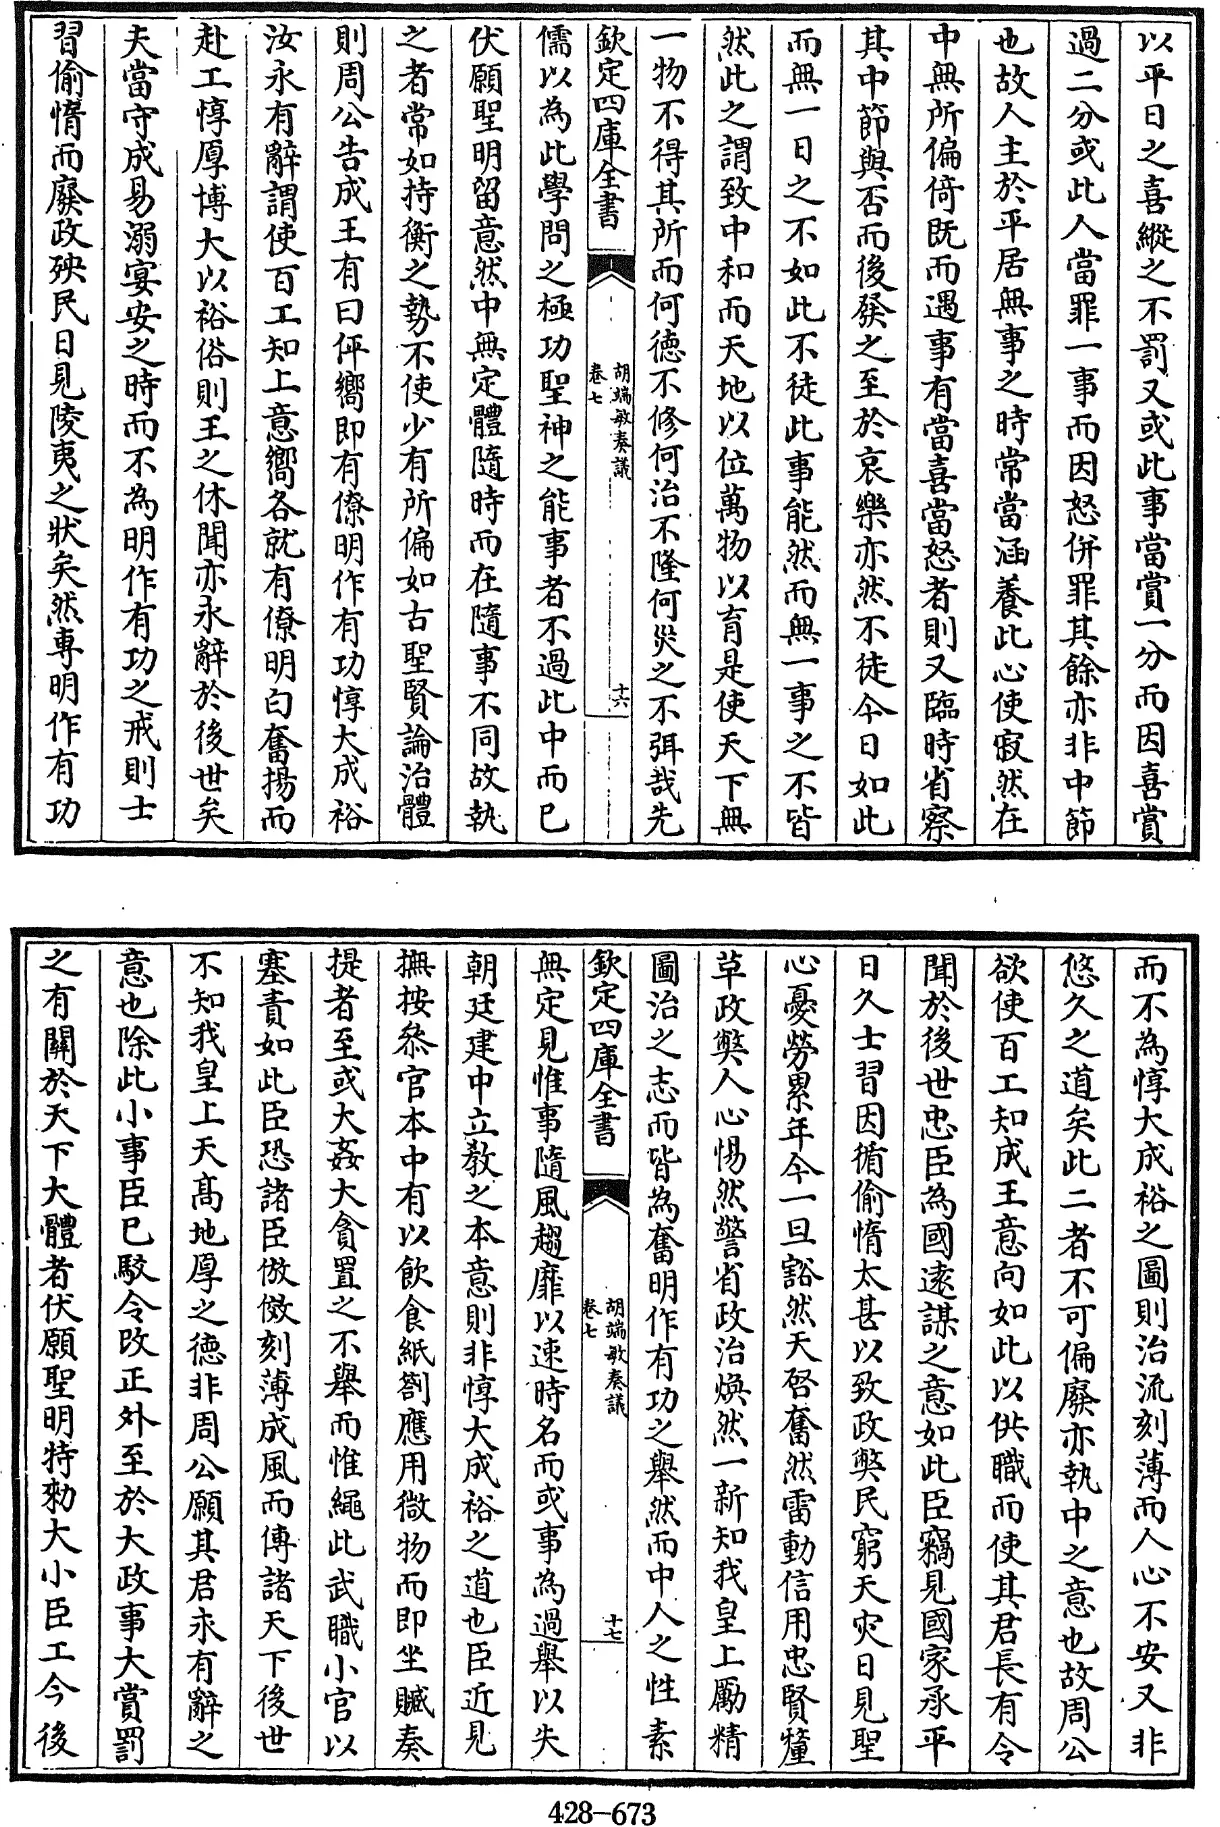 以平日之喜縱之不罰又或此事當賞一分而因喜賞
過二分或此人當罪一事而因怒併罪其餘亦非中節
也故人主於平居無事之時常當涵養此心使寂然在
中無所偏倚既而遇事有當喜當怒者則又臨時省察
其中節與否而後發之至於哀樂亦然不徒今日如此
而無一日之不如此不徒此事能然而無一事之不皆
然此之謂致中和而天地以位萬物以育是使天下無
一物不得其所而何德不修何治不隆何災之不弭哉先
欽定四庫全書
胡端敏奏議
卷七
十六
儒以為此學問之極功聖神之能事者不過此中而已
伏願聖明留意然中無定體隨時而在隨事不同故執
之者常如持衡之勢不使少有所偏如古聖賢論治體
則周公告成王有曰伻嚮即有僚明作有功惇大成裕
汝永有辭謂使百工知上意嚮各就有僚明白奮揚而
赴工惇厚博大以裕俗則王之休聞亦永辭於後世矣
夫當守成易溺宴安之時而不為明作有功之戒則士
習偷惰而廢政殃民日見陵夷之狀矣然專明作有功
而不為惇大成裕之圖則治流刻薄而人心不安又非
悠久之道矣此二者不可偏廢亦執中之意也故周公
欲使百工知成王意向如此以供職而使其君長有令
聞於後世忠臣為國遠謀之意如此臣竊見國家承平
日久士習因循偷惰太甚以致政弊民窮天災日見聖
心憂勞累年今一旦豁然天啓奮然雷動信用忠賢釐
草政弊人心惕然警省政治煥然一新知我皇上勵精
圖治之志而皆為奮明作有功之舉然而中人之性素
欽定四庫全書
胡端敏奏議
卷七
十七
無定見惟事隨風趨靡以速時名而或事為過舉以失
朝廷建中立教之本意則非惇大成裕之道也臣近見
撫按叅官本中有以飲食紙劄應用微物而即坐贓奏
提者至或大姦大貪置之不舉而惟繩此武職小官以
塞責如此臣恐諸臣倣傚刻薄成風而傳諸天下後世
不知我皇上天高地厚之德非周公願其君永有辭之
意也除此小事臣已駁令改正外至於大政事大賞罰
之有關於天下大體者伏願聖明特勑大小臣工今後
428-673